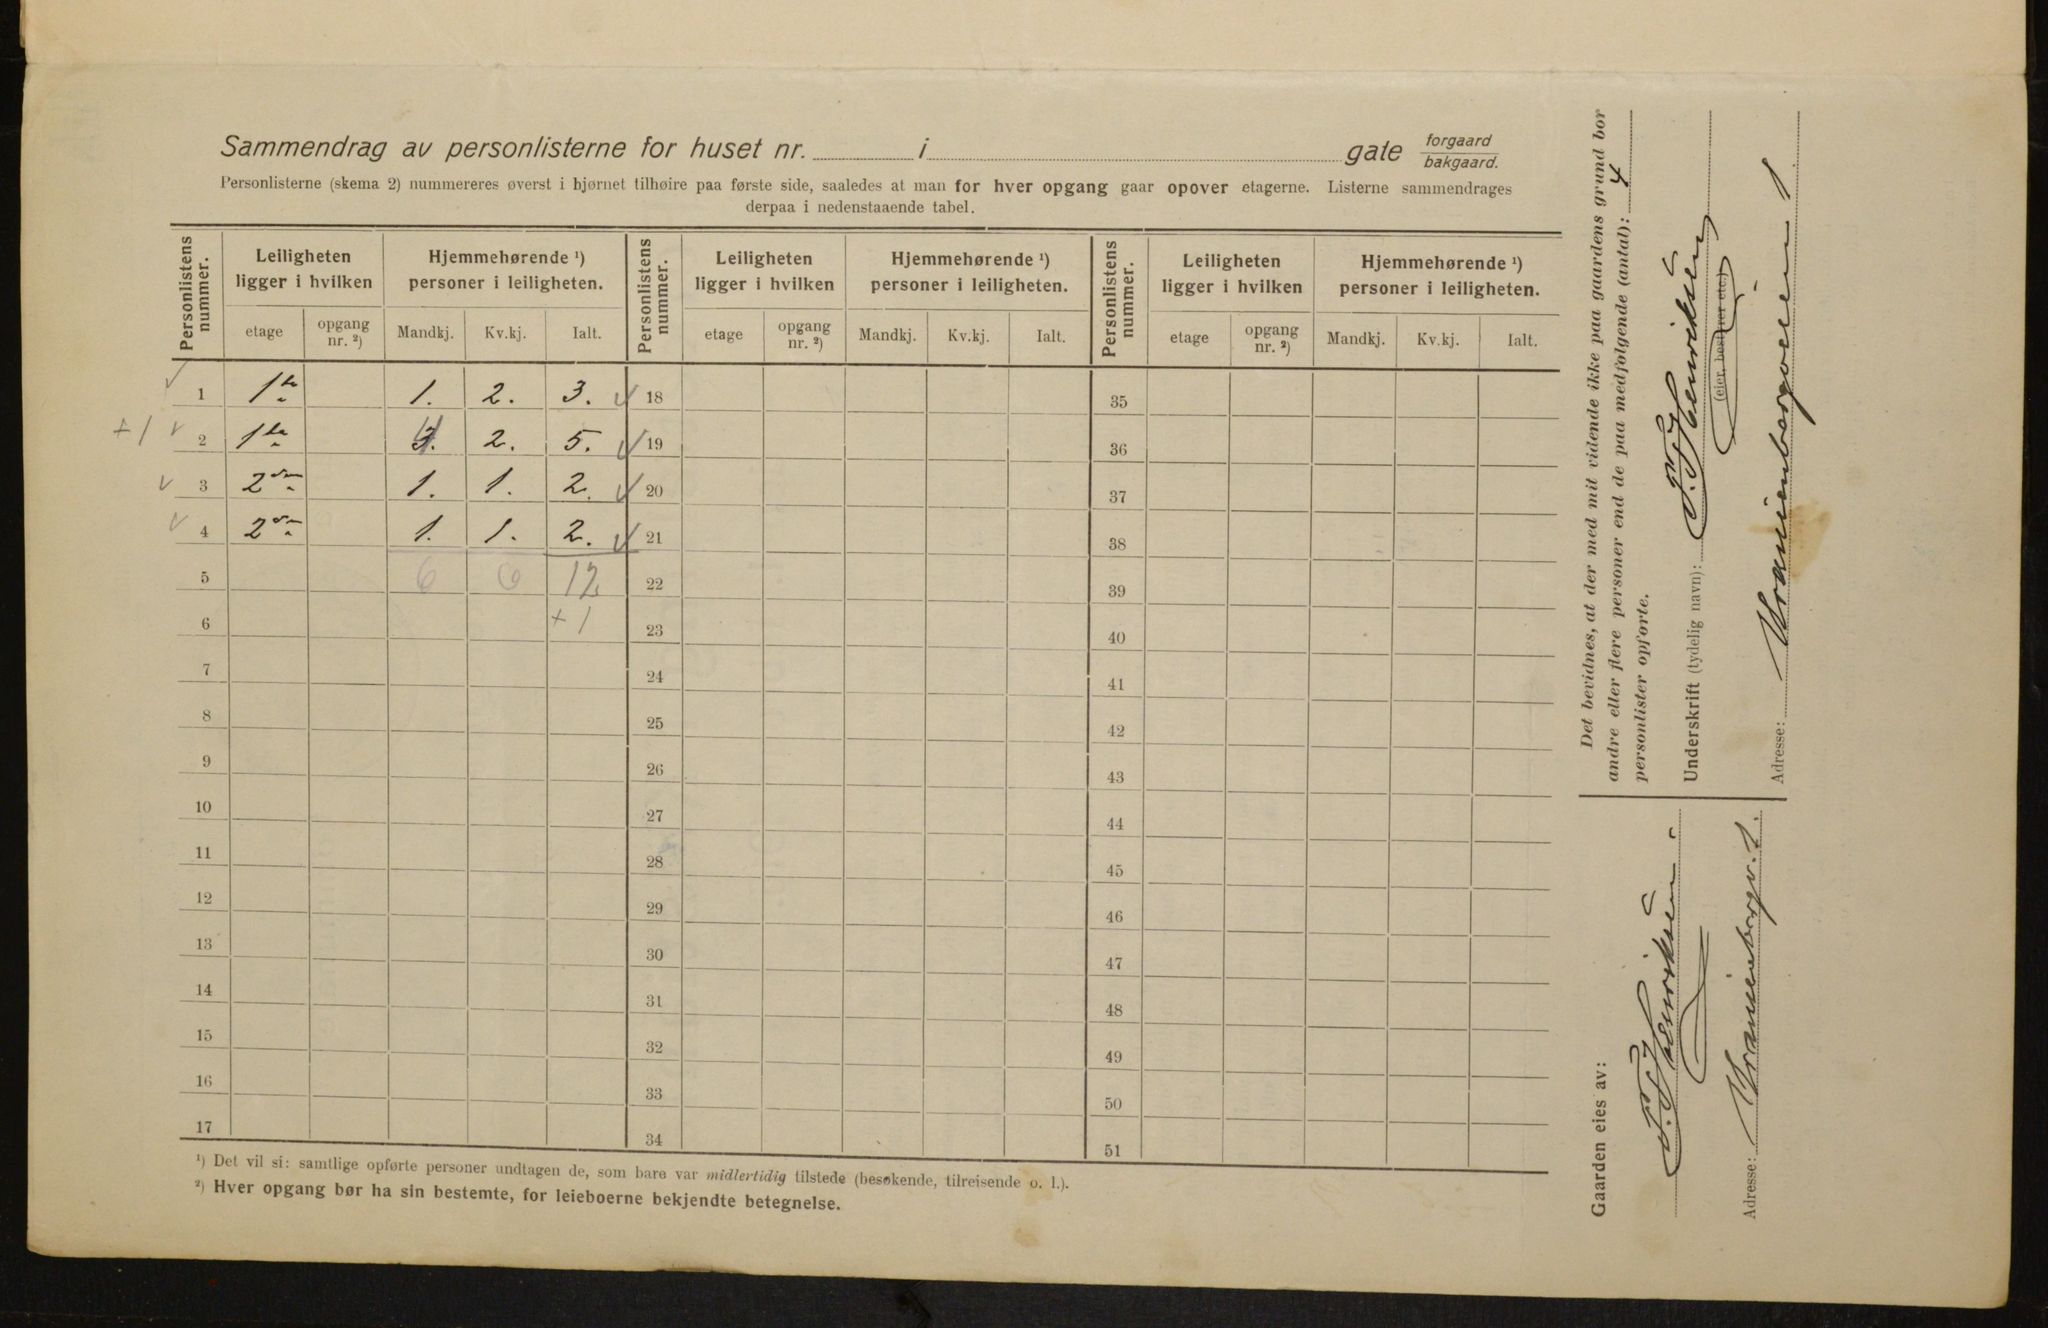 Sammendrag av personlisterne for huset nr. i gate forgaard bakgaard.
Personlisterne (skema 2) nummereres øverst i hjørnet tilhøire paa første side, saaledes at man for hver opgang gaar opover etagerne. Listerne sammendrages
derpaa i nedenstaaende tabel.
Personlistens nummer. Leiligheten ligger i hvilken Hjemmehørende ¹) personer i leiligheten. Personlistens nummer. Leiligheten ligger i hvilken Hjemmehørende ¹) personer i leiligheten. Personlistens nummer. Leiligheten ligger i hvilken Hjemmehørende ¹) personer i leiligheten.
etage opgang nr. ²) Mandkj. Kv.kj. Ialt. etage opgang nr. ²) Mandkj. Kv.kj. Ialt. etage opgang nr. ²) Mandkj. Kv.kj. Ialt.
1 1ste 1. 2. 3. 18 35
+1 2 1ste 2. 5. 19 36
3 2den 1. 1. 2. 20 37
4 2den 1. 1. 2. 21 38
5 6 6 12 22 39
6 +1 23 40
7 24 41
8 25 42
9 26 43
10 27 44
11 28 45
12 29 46
13 30 47
14 31 48
15 32 49
16 33 50
17 34 51
¹) Det vil si: samtlige opførte personer undtagen de, som bare var midlertidig tilstede (besøkende, tilreisende o. l.).
²) Hver opgang bør ha sin bestemte, for leieboerne bekjendte betegnelse.
Det bevidnes, at der med mit vidende ikke paa gaardens grund bor
andre eller flere personer end de paa medfølgende (antal): 4
personlister opførte.
Underskrift (tydelig navn): Henriksen
(eier, bestyrer etc.)
Adresse: Uranienborgveien 1
Gaarden eies av:
Henriksen
Adresse: Uranienborgv. 1.